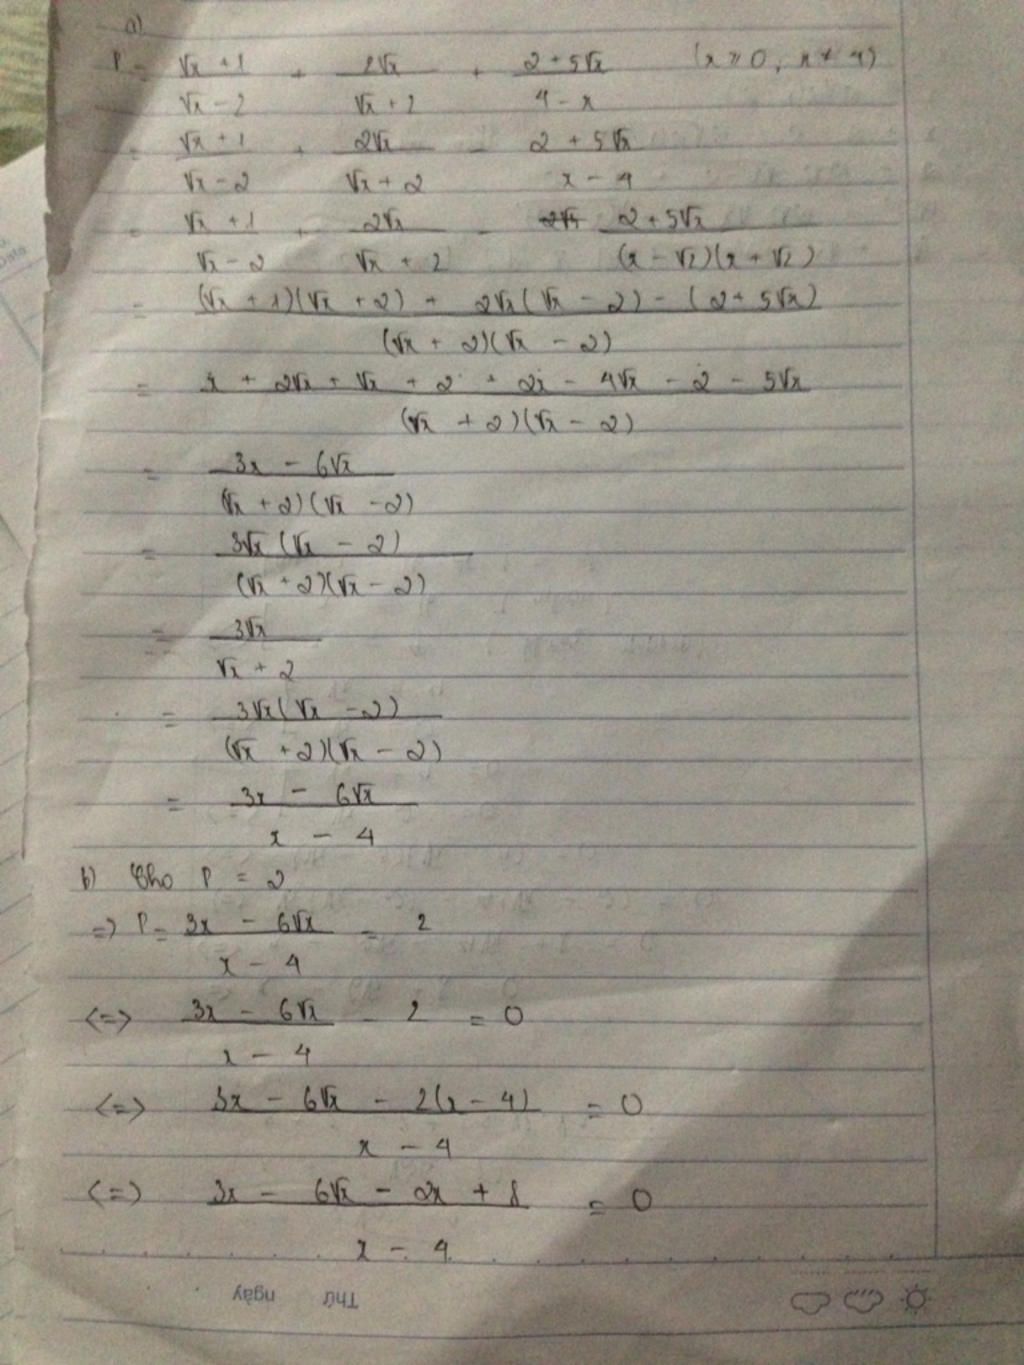 a)
P = (√x + 1)/(√x - 2) + (2√x)/(√x + 2) + (2 + 5√x)/(4 - x) (x ≥ 0, x ≠ 4)
= (√x + 1)/(√x - 2) + (2√x)/(√x + 2) - (2 + 5√x)/(x - 4)
= (√x + 1)/(√x - 2) + (2√x)/(√x + 2) - (2 + 5√x)/((x - √2)(x + √2))
= ((√x + 1)(√x + 2) + 2√x(√x - 2) - (2 + 5√x))/((√x + 2)(√x - 2))
= (x + 2√x + √x + 2 + 2x - 4√x - 2 - 5√x)/((√x + 2)(√x - 2))
= (3x - 6√x)/((√x + 2)(√x - 2))
= (3√x(√x - 2))/((√x + 2)(√x - 2))
= (3√x)/(√x + 2)
= (3√x(√x - 2))/((√x + 2)(√x - 2))
= (3x - 6√x)/(x - 4)
b) Cho P = 2
=> P = (3x - 6√x)/(x - 4) = 2
<=> (3x - 6√x)/(x - 4) - 2 = 0
<=> (3x - 6√x - 2(x - 4))/(x - 4) = 0
<=> (3x - 6√x - 2x + 8)/(x - 4) = 0
Thứ ngày